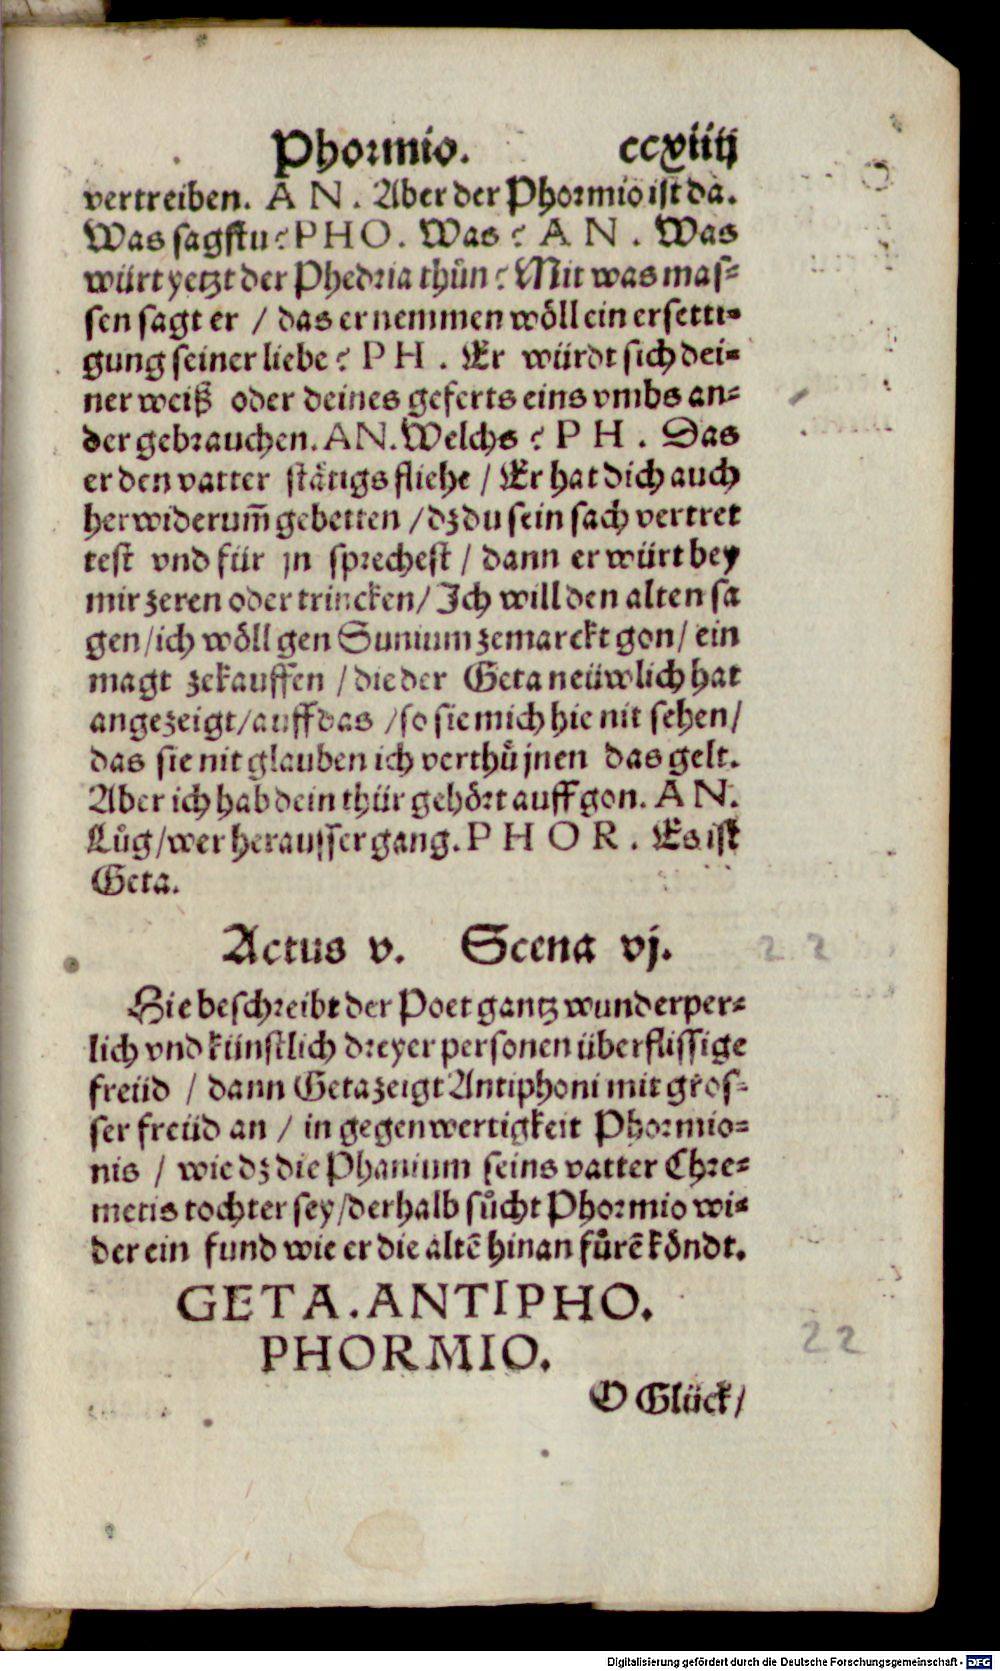 Phormio. ccxiiij
vertreiben. AN. Aber der Phormio ist da.
Was sagstu? PHO. Was? AN. Was
würt yetzt der Phedria thůn? Mit was mas-
sen sagt er / das er nemmen wöll ein ersetti-
gung seiner liebe? PH. Er würdt sich dei-
ner weiß oder deines geferts eins vmbs an-
der gebrauchen. AN. Welchs? PH. Das
er den vatter stätigs fliehe / Er hat dich auch
herwiderum̃ gebetten / dz du sein sach vertret
test vnd für jn sprechest / dann er würt bey
mir zeren oder trincken / Ich will den alten sa
gen / ich wöll gen Sunium zemarckt gon / ein
magt zekauffen / die der Geta neüwlich hat
angezeigt / auff das / so sie mich hie nit sehen /
das sie nit glauben ich verthů jnen das gelt.
Aber ich hab dein thür gehört auff gon. AN.
Lůg / wer herausser gang. PHOR. Es ist
Geta.
Actus v. Scena vj.
Hie beschreibt der Poet gantz wunderper-
lich vnd künstlich dreyer personen überflissige
freüd / dann Geta zeigt Antiphoni mit gros-
ser freüd an / in gegenwertigkeit Phormio-
nis / wie dz die Phanium seins vatter Chre-
metis tochter sey / derhalb sůcht Phormio wi-
der ein fund wie er die altẽ hinan fůrẽ köndt.
GETA. ANTIPHO.
PHORMIO.
O Glück /
22
22
Digitalisierung gefördert durch die Deutsche Forschungsgemeinschaft - DFG